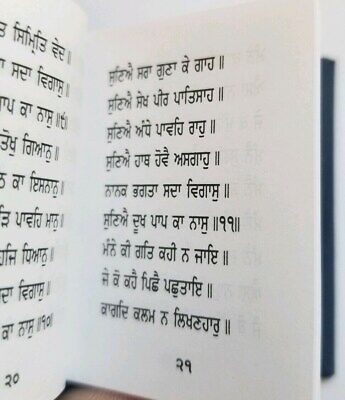 ਤ ਸਿਮ੍ਰਿਤਿ ਵੇਦ॥
ਸਦਾ ਵਿਗਾਸੁ॥
ਪਾਪ ਕਾ ਨਾਸੁ॥੯॥
ਤੋਖੁ ਗਿਆਨੁ॥
ਠ ਕਾ ਇਸਨਾਨੁ॥
ੜਿ ਪਾਵਹਿ ਮਾਨੁ॥
ਹਜਿ ਧਿਆਨੁ॥
ਦਾ ਵਿਗਾਸੁ॥
ਕਾ ਨਾਸੁ॥੧੦॥
੨੦
ਸੁਣਿਐ ਸਰਾ ਗੁਣਾ ਕੇ ਗਾਹ॥
ਸੁਣਿਐ ਸੇਖ ਪੀਰ ਪਾਤਿਸਾਹ॥
ਸੁਣਿਐ ਅੰਧੇ ਪਾਵਹਿ ਰਾਹੁ॥
ਸੁਣਿਐ ਹਾਥ ਹੋਵੈ ਅਸਗਾਹੁ॥
ਨਾਨਕ ਭਗਤਾ ਸਦਾ ਵਿਗਾਸੁ॥
ਸੁਣਿਐ ਦੂਖ ਪਾਪ ਕਾ ਨਾਸੁ॥੧੧॥
ਮੰਨੇ ਕੀ ਗਤਿ ਕਹੀ ਨ ਜਾਇ॥
ਜੇ ਕੋ ਕਹੈ ਪਿਛੈ ਪਛੁਤਾਇ॥
ਕਾਗਦਿ ਕਲਮ ਨ ਲਿਖਣਹਾਰੁ॥
੨੧